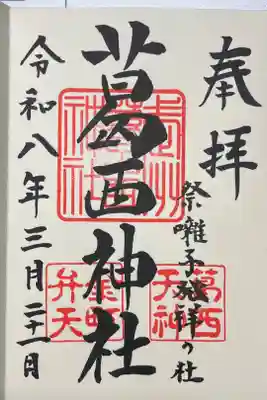 奉拝
祭囃子発祥の社
葛西神社
令和八年三月二十一日
葛西
天神
弁天